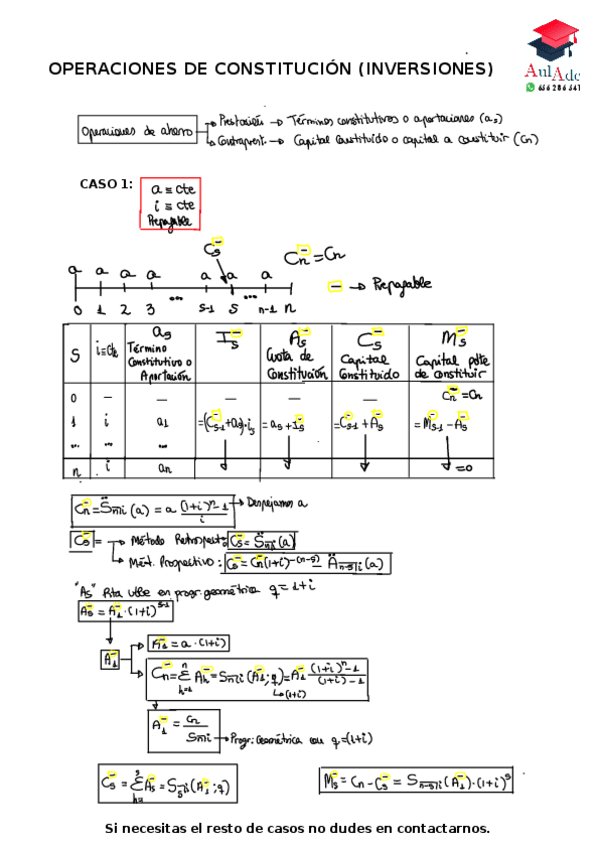 OPERACIONES DE CONSTITUCIÓN (INVERSIONES)
AulAde
656 286 541
Operaciones de ahorro
Prestación → Términos constitutivos o aportaciones (as)
Contraprest. → Capital Constituido o capital a constituir (Cn)
CASO 1:
a ≡ cte
i ≡ cte
Prepagable
Cs⁻
Cn⁻ = Cn
a a a a a a a
0 1 2 3 ... s-1 s ... n-1 n
— → Prepagable
S | i≡Cte | as Término Constitutivo o Aportación | Is⁻ | As⁻ Cuota de Constitución | Cs⁻ Capital Constituido | Ms⁻ Capital pdte de constituir
0 — — — — — Cn⁻ = Cn
1 i a1 =(Cs-1⁻+as)·is = as + Is⁻ = Cs-1⁻ + As⁻ = Ms-1⁻ − As⁻
... ...
n i an =0
Cn⁻ = S̈n¬i (a) = a (1+i)ⁿ-1 / i → Despejamos a
Cs⁻ =
→ Método Retrospect: Cs⁻ = S̈s¬i (a)
→ Mét. Prospectivo: Cs⁻ = Cn⁻(1+i)^-(n-s) − Än-s¬i (a)
"As⁻" Rta Vble en progr. geométrica q = 1+i
As⁻ = A1⁻ · (1+i)^s-1
A1⁻
A1⁻ = a · (1+i)
Cn⁻ = Σ(h=1, n) Ah⁻ = Sn¬i (A1⁻; q) = A1⁻ (1+i)ⁿ-1 / (1+i)-1
↳ (1+i)
A1⁻ = Cn / Sn¬i → Progr. Geométrica con q=(1+i)
Cs⁻ = Σ(h=1, s) As⁻ = Ss¬i (A1⁻; q)
Ms⁻ = Cn − Cs⁻ = Sn-s¬i (A1⁻) · (1+i)^s
Si necesitas el resto de casos no dudes en contactarnos.